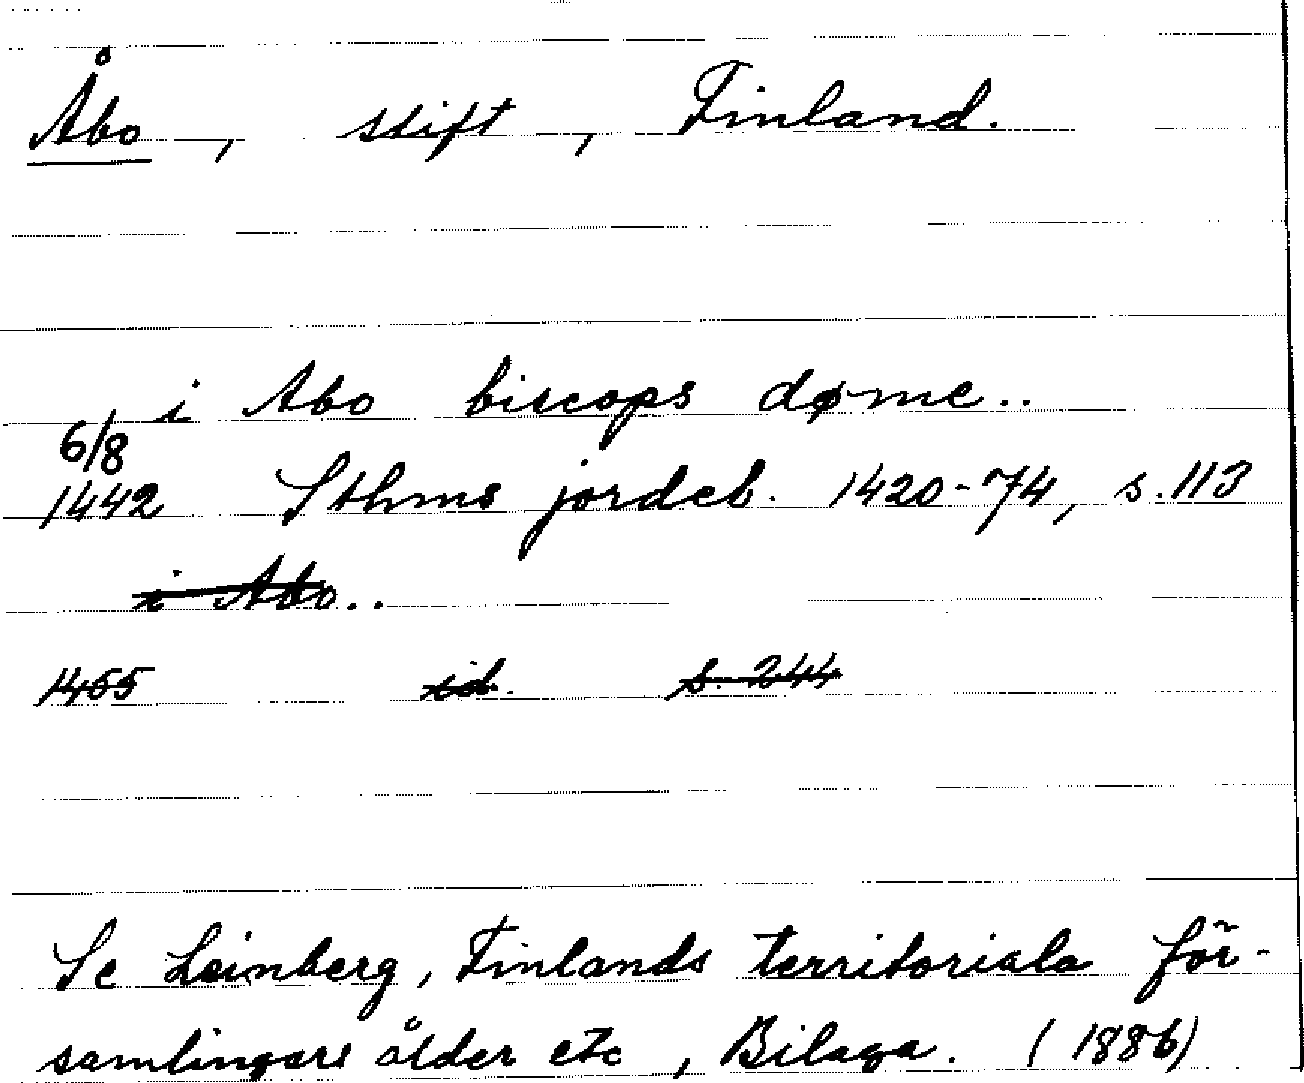 Åbo, stift, Finland.
i Abo biscops døme..
6/8
1442 Sthms jordeb. 1420-74, s. 113
i Abo..
1465 id. s. 244
Se Leinberg, Finlands territoriala för-
samlingars ålder etc, Bilaga. (1886)